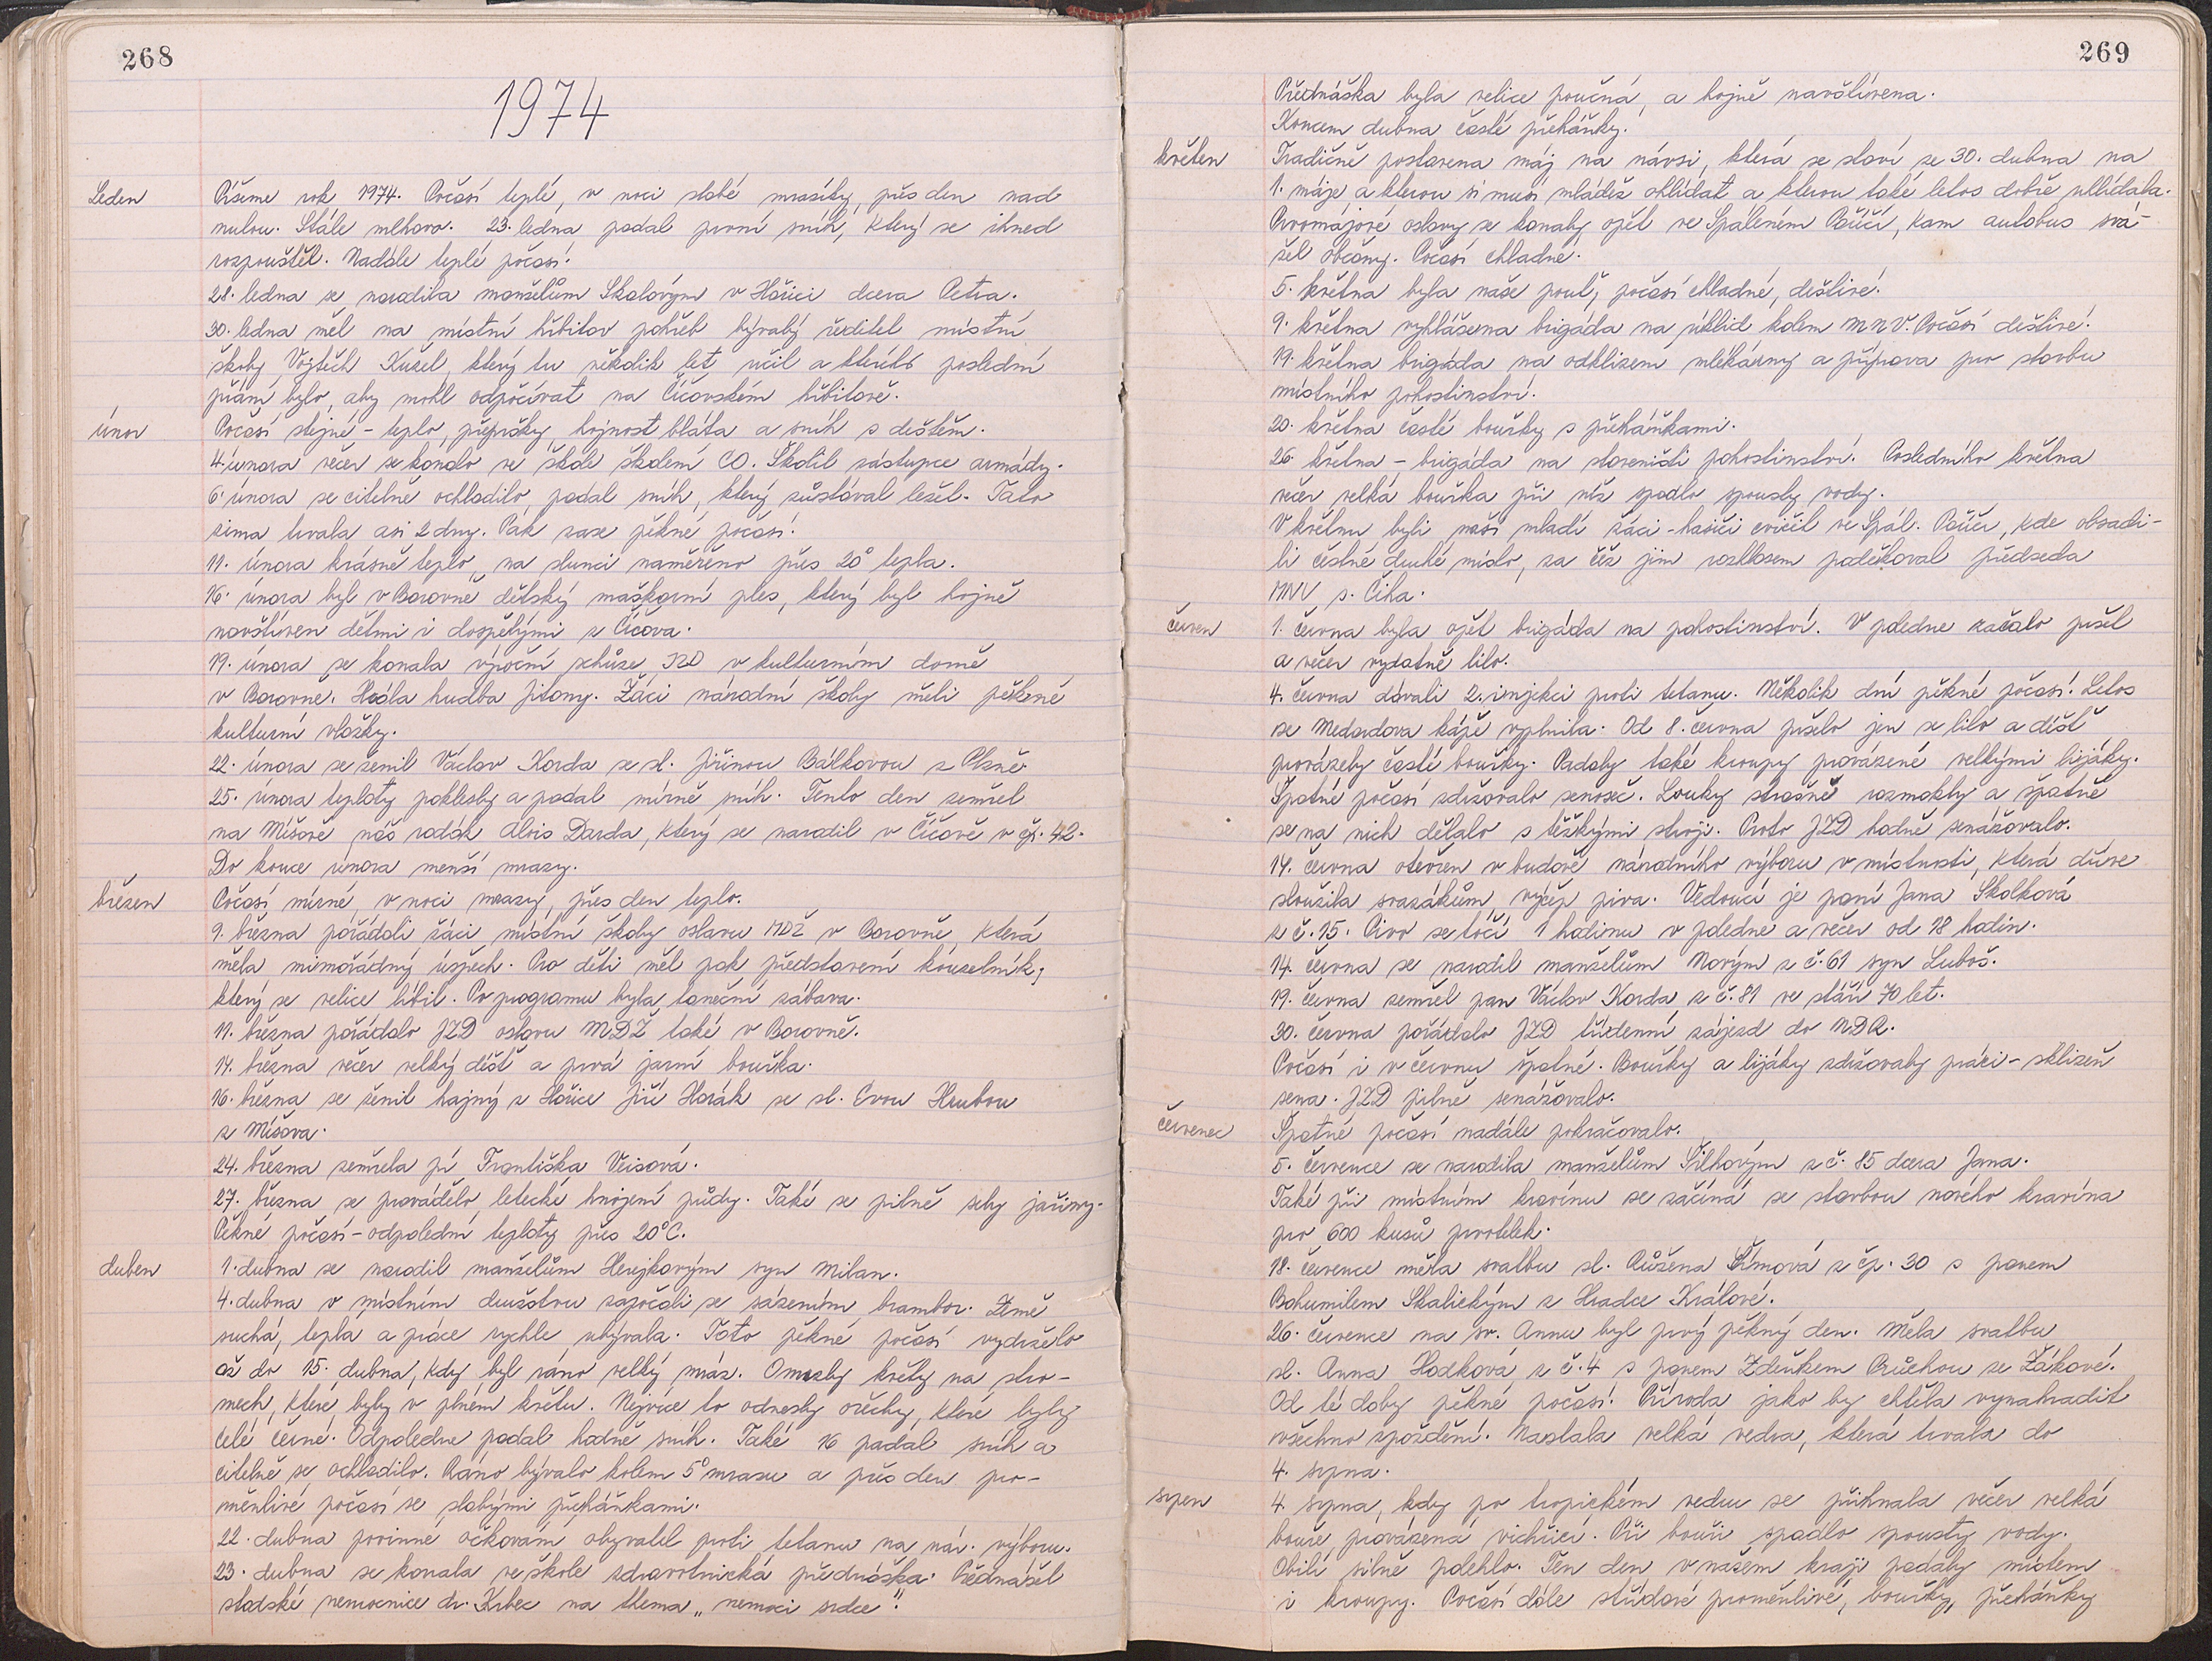 268
1974
Leden
Píšeme rok 1974. Počasí teplé, v noci slabé mrazíky, přes den nad
nulou. Stále mlhavo. 23. ledna padal první sníh, který se ihned
rozpouštěl. Nadále teplé počasí.
28. ledna se narodila manželům Skalovým v Hořici dcera Petra.
30. ledna měl na místní hřbitov pohřeb bývalý ředitel místní
školy Vojtěch Kužel, který tu několik let učil a kterého poslední
přání bylo, aby mohl odpočívat na Čížovském hřbitově.
únor
Počasí stejné - teplo, přepršky, hojnost bláta a sníh s deštěm.
4. února večer se konalo ve škole školení CO. Školil zástupce armády.
6. února se citelně ochladilo, padal sníh, který zůstával ležet. Tato
zima trvala asi 2 dny. Pak zase pěkné počasí.
11. února krásně teplo, na slunci naměřeno přes 20° tepla.
16. února byl v Borovně dětský maškarní ples, který byl hojně
navštíven dětmi i dospělými z Číčova.
19. února se konala výroční schůze JZD v kulturním domě
v Borovně. Hrála hudba Jitony. Žáci národní školy měli pěkené
kulturní vložky.
22. února se ženil Václav Korda se sl. Jiřinou Bálkovou z Plzně.
25. února teploty poklesly a padal mírně sníh. Tento den zemřel
na Míšově náš rodák Alois Darda, který se narodil v Číčově v čp. 42.
Do konce února menší mrazy.
březen
Počasí mírné, v noci mrazy, přes den teplo.
9. března pořádali žáci místní školy oslavu MDŽ v Borovně, která
měla mimořádný úspěch. Pro děti měl pak představení kouzelník,
který se velice líbil. Po programu byla taneční zábava.
11. března pořádalo JZD oslavu MDŽ také v Borovně.
14. března večer velký déšť a prvá jarní bouřka.
16. března se ženil hajný z Hořice Jiří Horák se sl. Evou Hrubou
z Míšova.
24. března zemřela pí Františka Veisová.
27. března se provádělo letecké hnojení půdy. Také se pilně sely jařiny.
Pěkné počasí - odpolední teploty přes 20°C.
duben
1. dubna se narodil manželům Herejkovým syn Milan.
4. dubna v místním družstvu započali se sázením brambor. Země
suchá, teplá a práce rychle ubývala. Toto pěkné počasí vydrželo
až do 15. dubna, kdy byl ráno velký mráz. Omrzly květy na stro-
mech, které byly v plném květu. Nejvíce to odnesly ořechy, které byly
celé černé. Odpoledne padal hodně sníh. Také 16 padal sníh a
citelně se ochladilo. Ráno bývalo kolem 5° mrazu a přes den pro-
měnlivé počasí se slabými přeháňkami.
22. dubna povinné očkování obyvatel proti tetanu na nár. výboru.
23. dubna se konala ve škole zdravotnická přednáška. Přednášel
plodské nemocnice dr. Krbec na thema „nemoci srdce".
269
Přednáška byla velice poučná, a hojně navštívena.
Koncem dubna časté přeháňky.
květen
Tradičně postavena máj na návsi, která se staví ze 30. dubna na
1. máje a kterou si musí mládež ohlídat a kterou také letos dobře uhlídala.
Prvomájové oslavy se konaly opět ve Spáleném Poříčí, kam autobus svá-
žel občany. Počasí chladné.
5. května byla naše pouť, počasí chladné, deštivé.
9. května vyhlášena brigáda na úklid kolem MNV. Počasí deštivé.
19. května brigáda na odklizení mlékárny a příprava pro stavbu
místního pohostinství.
20. května časté bouřky s přeháňkami.
26. května - brigáda na staveništi pohostinství. Posledního května
večer velká bouřka při níž spadlo spousty vody.
V květnu byli naši mladí žáci-hasiči cvičit ve Spál. Poříčí, kde obsadi-
li čestné druhé místo, za což jim rozhlasem poděkoval předseda
MNV s. Čiha.
červen
1. června byla opět brigáda na pohostinství. V poledne začalo pršet
a večer vydatně lilo.
4. června dávali 2. injekci proti tetanu. Několik dní pěkné počasí. Letos
se Medardova kápě vyplnila. Od 8. června pršelo jen se lilo a déšť
provázely časté bouřky. Padaly také kroupy provázené velkými lijáky.
Špatné počasí zdržovalo senoseč. Louky strašně rozmokly a špatně
se na nich dělalo s těžkými stroji. Proto JZD hodně senážovalo.
14. června otevřen v budově národního výboru v místnosti, která dříve
sloužila svazákům výčep piva. Vedoucí je paní Jana Školková
z č. 15. Pivo se točí 1 hodinu v poledne a večer od 18 hodin.
14. června se narodil manželům Novým z č. 61 syn Luboš.
19. června zemřel pan Václav Korda z č. 81 ve stáří 70 let.
30. června pořádalo JZD týdenní zájezd do NDR.
Počasí i v červnu špatné. Bouřky a lijáky zdržovaly práci - sklizeň
sena. JZD pilně senážovalo.
červenec
Špatné počasí nadále pokračovalo.
5. července se narodila manželům Šilhovým z č. 85 dcera Jana.
Také při místním kravínu se začíná se stavbou nového kravína
pro 600 kusů prvotelek.
18. července měla svatbu sl. Růžena Šímová z čp. 30 s panem
Bohumilem Skalickým z Hradce Králové.
26. července na sv. Annu byl prvý pěkný den. Měla svatbu
sl. Anna Hodková z č. 4 s panem Zdeňkem Průchou ze Žákové.
Od té doby pěkné počasí. Příroda jako by chtěla vynahradit
všechno zpoždění. Nastala velká vedra, která trvala do
4. srpna.
srpen
4. srpna, kdy po tropickém vedru se přihnala večer velká
bouře, provázená vichřicí. Při bouři spadlo spousty vody.
Obilí silně polehlo. Ten den v našem kraji padaly místem
i kroupy. Počasí dále střídavě proměnlivé, bouřky, přeháňky